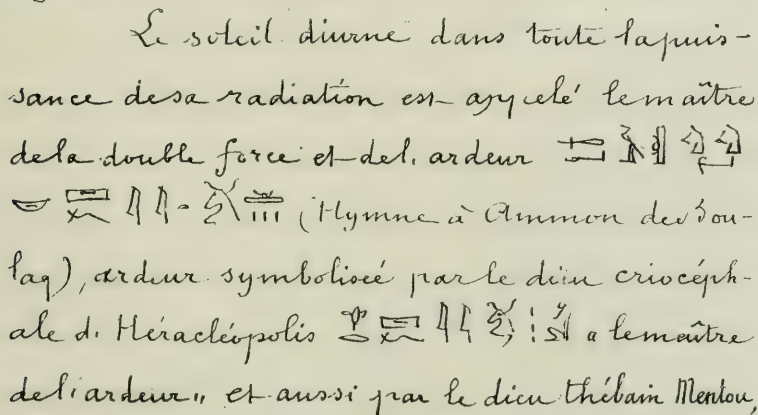 Le soleil diurne dans toute la puis-
sance de sa radiation est appelé le maître
de la double force et de l'ardeur
(Hymne à Ammon de Bou-
laq), ardeur symbolisée par le dieu criocéph-
ale d'Héracléopolis « le maître
de l'ardeur » et aussi par le dieu thébain Mentou,